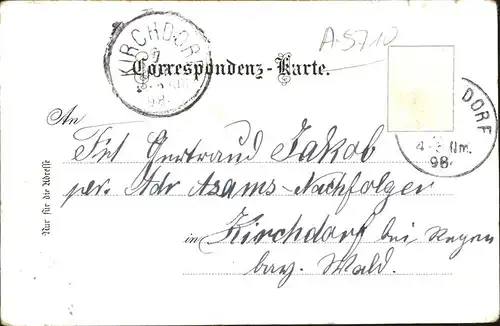 A-5710
KIRCHDOR
98.
Correspondenz-Karte.
DORF
4-5 Nm.
98.
An
Frl Gertraud Jakob
per. Adr Asams-Nachfolger
in Kirchdorf bei Regen
bay. Wald.
Nur für die Adresse